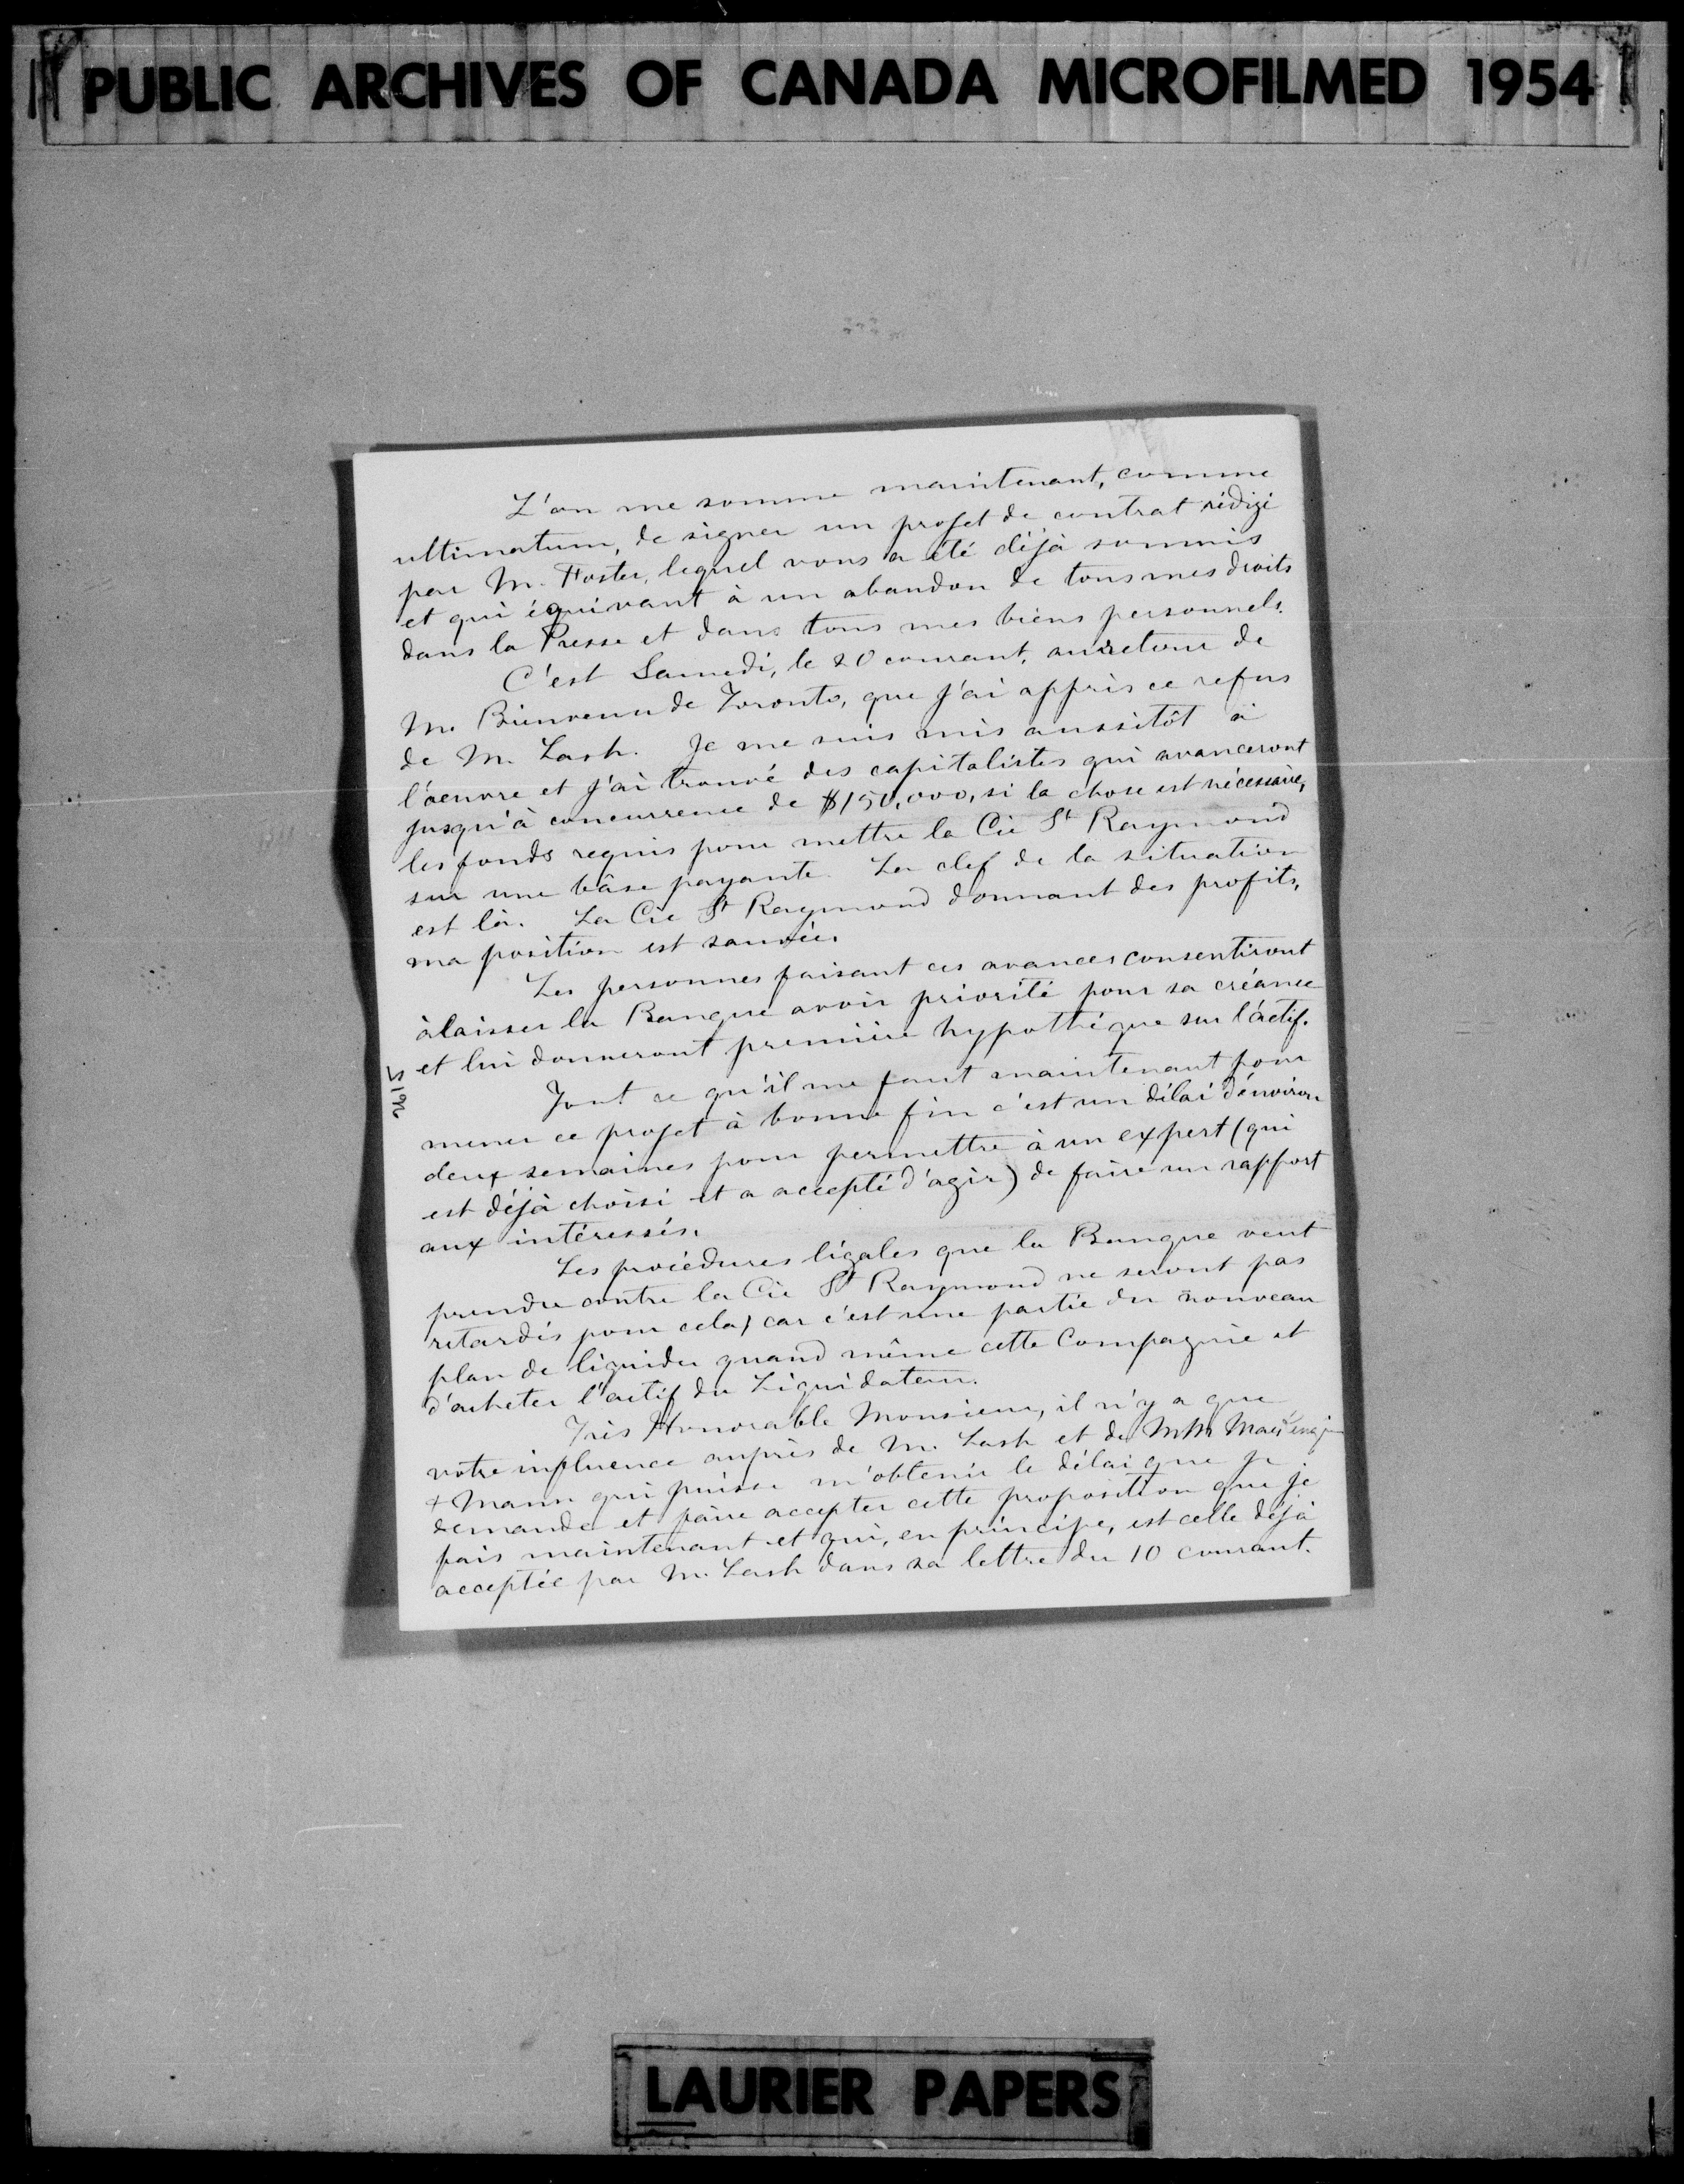 PUBLIC ARCHIVES OF CANADA MICROFILMED 1954
L'on me somme maintenant, comme
ultimatum, de signer un projet de contrat rédigé
par M. Foster, lequel vous a été déjà soumis
et qui équivaut à un abandon de tous mes droits
dans la Presse et dans tous mes biens personnels.
C'est Samedi, le 20 courant, au retour de
M. Bienvenu de Toronto, que j'ai appris ce refus
de M. Lash. Je me suis mis aussitôt à
l'oeuvre et j'ai trouvé des capitalistes qui avanceront
jusqu'à concurrence de $150,000, si la chose est nécessaire,
les fonds requis pour mettre la Cie St Raymond
sur une bâse payante. La clef de la situation
est là. La Cie St Raymond donnant des profits,
ma position est sauvée.
Les personnes faisant ces avances consentiront
à laisser la Banque avoir priorité pour sa créance
et lui donneront première hypothéque sur l'actif.
Tout ce qu'il me faut maintenant pour
mener ce projet à bonne fin c'est un délai d'environ
deux semaines pour permettre à un expert (qui
est déjà choisi et a accepté d'agir) de faire un rapport
aux intéressés.
Les procédures légales que la Banque veut
prendre contre la Cie St Raymond ne seront pas
retardés pour cela, car c'est une partie du nouveau
plan de liquider quand même cette Compagnie et
d'acheter l'actif du Liquidateur.
Très Honorable Monsieur, il n'y a que
votre influence auprès de M. Lash et de MM
+ Mann qui puisse m'obtenir le délai que je
demande et faire accepter cette proposition que je
fais maintenant et qui, en principe, est celle déjà
acceptée par M. Lash dans sa lettre du 10 courant.
LAURIER PAPERS